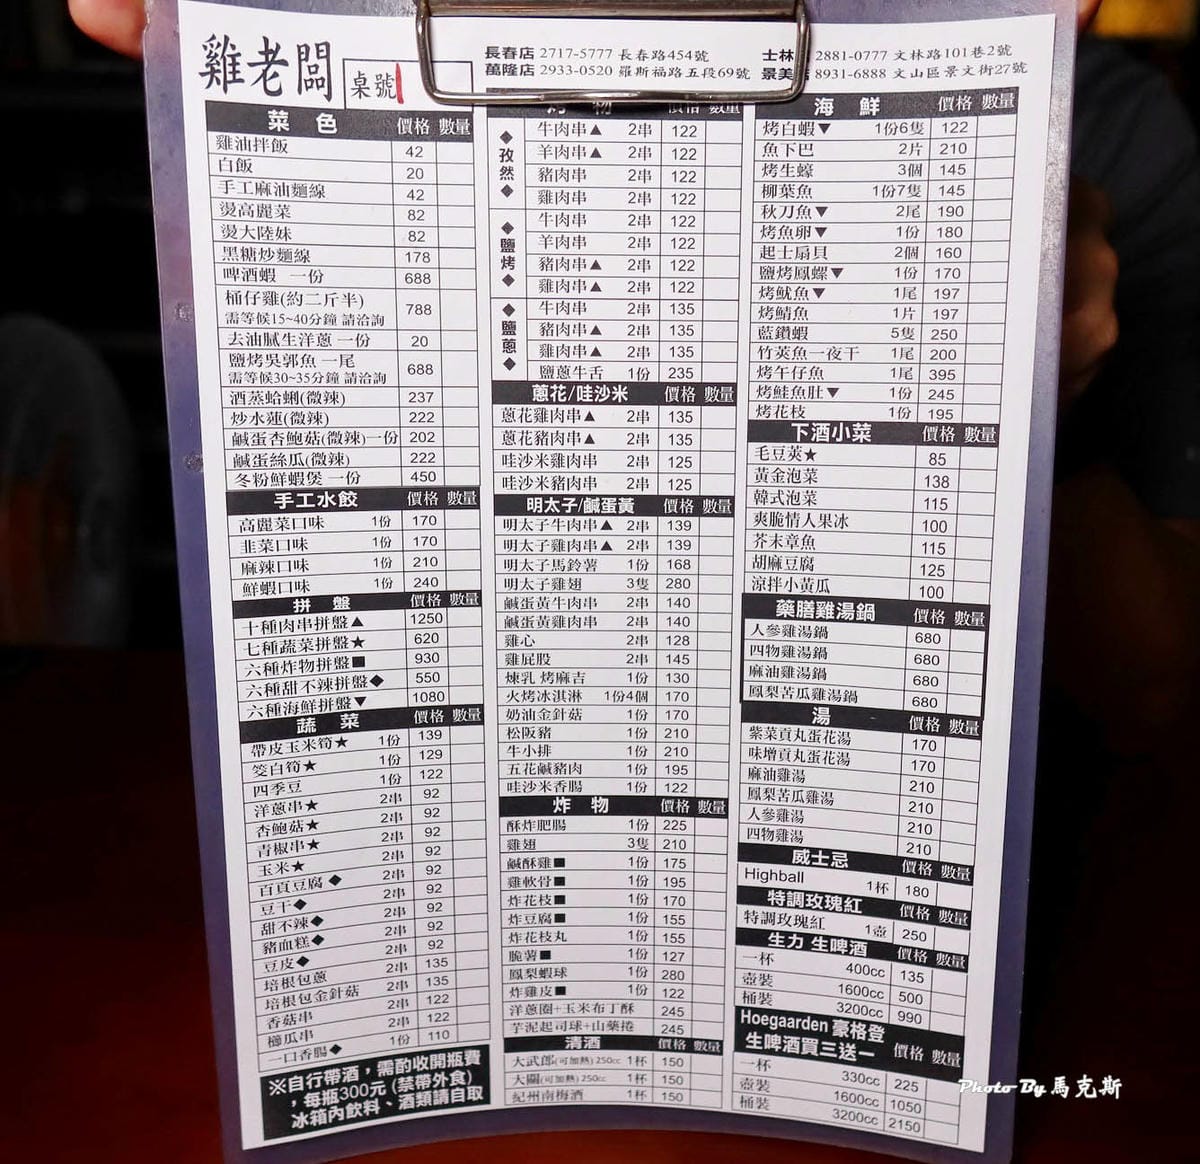 雞老闆
桌號
長春店 2717-5777 長春路454號
萬隆店 2933-0520 羅斯福路五段69號
士林 2881-0777 文林路101巷2號
景美 8931-6888 文山區景文街27號
菜 色 價格 數量
雞油拌飯 42
白飯 20
手工麻油麵線 42
燙高麗菜 82
燙大陸妹 82
黑糖炒麵線 178
啤酒蝦 一份 688
桶仔雞(約二斤半) 788
需等候15~40分鐘 請洽詢
去油膩生洋蔥 一份 20
鹽烤吳郭魚 一尾 688
需等候30~35分鐘 請洽詢
酒蒸蛤蜊(微辣) 237
炒水蓮(微辣) 222
鹹蛋杏鮑菇(微辣)一份 202
鹹蛋絲瓜(微辣) 222
冬粉鮮蝦煲 一份 450
手工水餃 價格 數量
高麗菜口味 1份 170
韭菜口味 1份 170
麻辣口味 1份 210
鮮蝦口味 1份 240
拼 盤 價格 數量
十種肉串拼盤▲ 1250
七種蔬菜拼盤★ 620
六種炸物拼盤■ 930
六種甜不辣拼盤◆ 550
六種海鮮拼盤▼ 1080
蔬 菜 價格 數量
帶皮玉米筍★ 1份 139
筊白筍★ 1份 129
四季豆 1份 122
洋蔥串★ 2串 92
杏鮑菇★ 2串 92
青椒串★ 2串 92
玉米★ 2串 92
百頁豆腐◆ 2串 92
豆干◆ 2串 92
甜不辣◆ 2串 92
豬血糕◆ 2串 92
豆皮◆ 2串 92
培根包蔥 2串 135
培根包金針菇 2串 135
香菇串 2串 122
櫛瓜串 2串 122
一口香腸◆ 1份 110
※自行帶酒，需酌收開瓶費
，每瓶300元 (禁帶外食)
冰箱內飲料、酒類請自取
物 價格 數量
◆孜然◆
牛肉串▲ 2串 122
羊肉串▲ 2串 122
豬肉串 2串 122
雞肉串 2串 122
◆鹽烤◆
牛肉串 2串 122
羊肉串 2串 122
豬肉串▲ 2串 122
雞肉串▲ 2串 122
◆鹽蔥◆
牛肉串 2串 135
豬肉串▲ 2串 135
雞肉串▲ 2串 135
鹽蔥牛舌 1份 235
蔥花/哇沙米 價格 數量
蔥花雞肉串▲ 2串 135
蔥花豬肉串▲ 2串 135
哇沙米雞肉串 2串 125
哇沙米豬肉串 2串 125
明太子/鹹蛋黃 價格 數量
明太子牛肉串▲ 2串 139
明太子雞肉串▲ 2串 139
明太子馬鈴薯 1份 168
明太子雞翅 3隻 280
鹹蛋黃牛肉串 2串 140
鹹蛋黃雞肉串 2串 140
雞心 2串 128
雞屁股 2串 145
煉乳 烤麻吉 1份 130
火烤冰淇淋 1份4個 170
奶油金針菇 1份 170
松阪豬 1份 210
牛小排 1份 210
五花鹹豬肉 1份 195
哇沙米香腸 1份 122
炸 物 價格 數量
酥炸肥腸 1份 225
雞翅 3隻 210
鹹酥雞■ 1份 175
雞軟骨■ 1份 195
炸花枝■ 1份 170
炸豆腐■ 1份 155
炸花枝丸 1份 155
脆薯■ 1份 127
鳳梨蝦球 1份 280
炸雞皮■ 1份 122
洋蔥圈+玉米布丁酥 245
芋泥起司球+山藥捲 245
清酒 價格 數量
大武郎(可加熱) 250cc 1杯 150
大關(可加熱) 250cc 1杯 150
紀州南梅酒 1杯 150
海 鮮 價格 數量
烤白蝦▼ 1份6隻 122
魚下巴 2片 210
烤生蠔 3個 145
柳葉魚 1份7隻 145
秋刀魚▼ 2尾 190
烤魚卵▼ 1份 180
起士扇貝 2個 160
鹽烤鳳螺▼ 1份 170
烤魷魚▼ 1尾 197
烤鯖魚 1片 197
藍鑽蝦 5隻 250
竹莢魚一夜干 1尾 200
烤午仔魚 1尾 395
烤鮭魚肚▼ 1份 245
烤花枝 1份 195
下酒小菜 價格 數量
毛豆莢★ 85
黃金泡菜 138
韓式泡菜 115
爽脆情人果冰 100
芥末章魚 115
胡麻豆腐 125
涼拌小黃瓜 100
藥膳雞湯鍋 價格 數量
人參雞湯鍋 680
四物雞湯鍋 680
麻油雞湯鍋 680
鳳梨苦瓜雞湯鍋 680
湯 價格 數量
紫菜貢丸蛋花湯 170
味增貢丸蛋花湯 170
麻油雞湯 210
鳳梨苦瓜雞湯 210
人參雞湯 210
四物雞湯 210
威士忌 價格 數量
Highball 1杯 180
特調玫瑰紅 價格 數量
特調玫瑰紅 1壺 250
生力 生啤酒 價格 數量
一杯 400cc 135
壺裝 1600cc 500
桶裝 3200cc 990
Hoegaarden 豪格登
生啤酒買三送一 價格 數量
一杯 330cc 225
壺裝 1600cc 1050
桶裝 3200cc 2150
Photo By 馬克斯